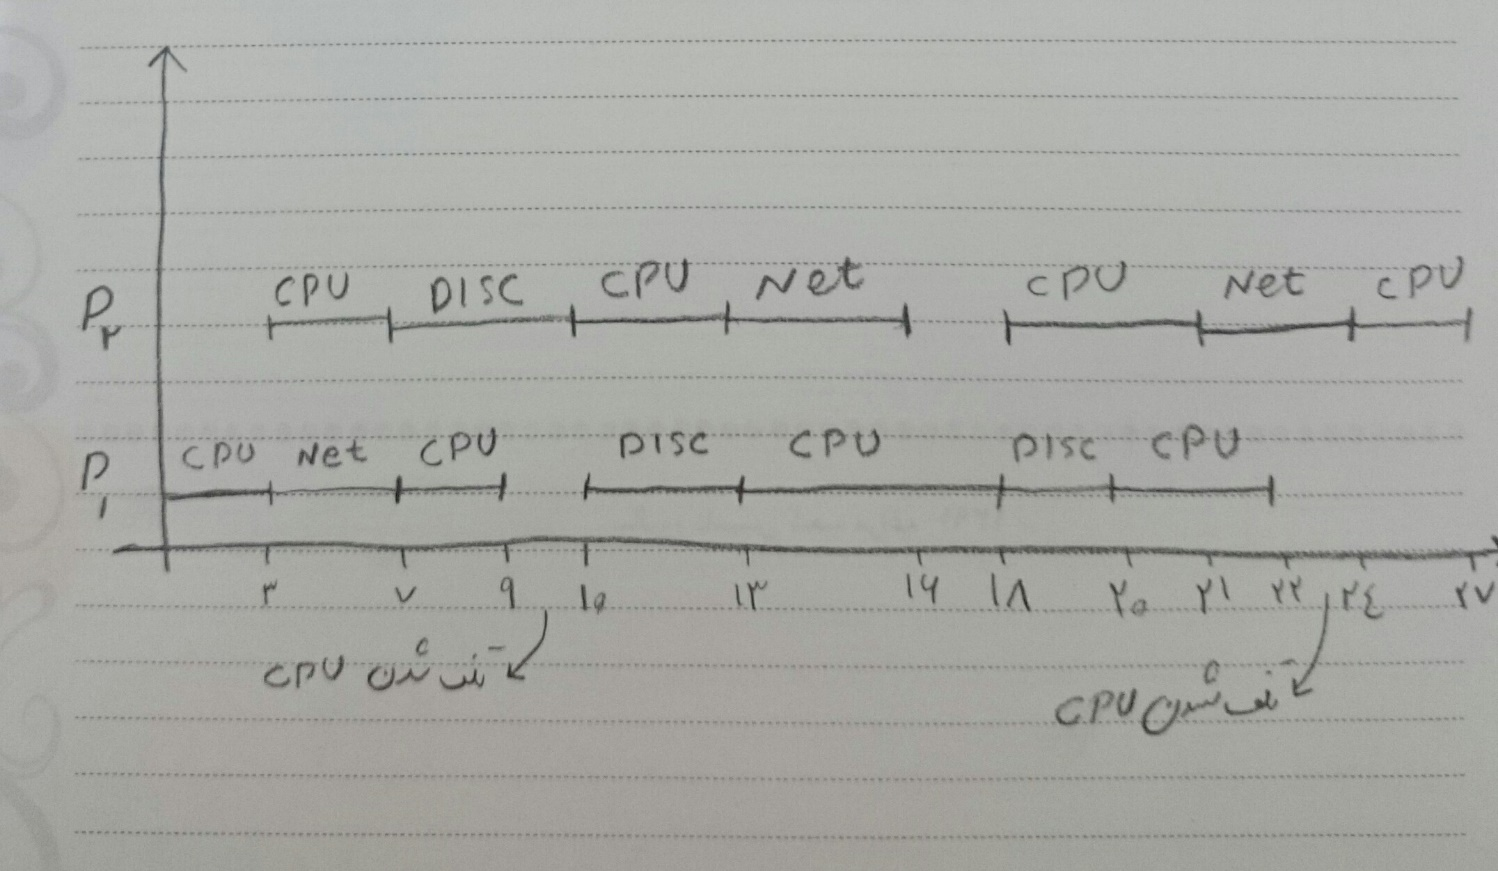 CPU DISC CPU Net CPU Net CPU
P۲
CPU Net CPU DISC CPU DISC CPU
P۱
۳ ۷ ۹ ۱۰ ۱۳ ۱۶ ۱۸ ۲۰ ۲۱ ۲۲ ۲٤ ۲۷
تلف شدن CPU
تلف شدن CPU